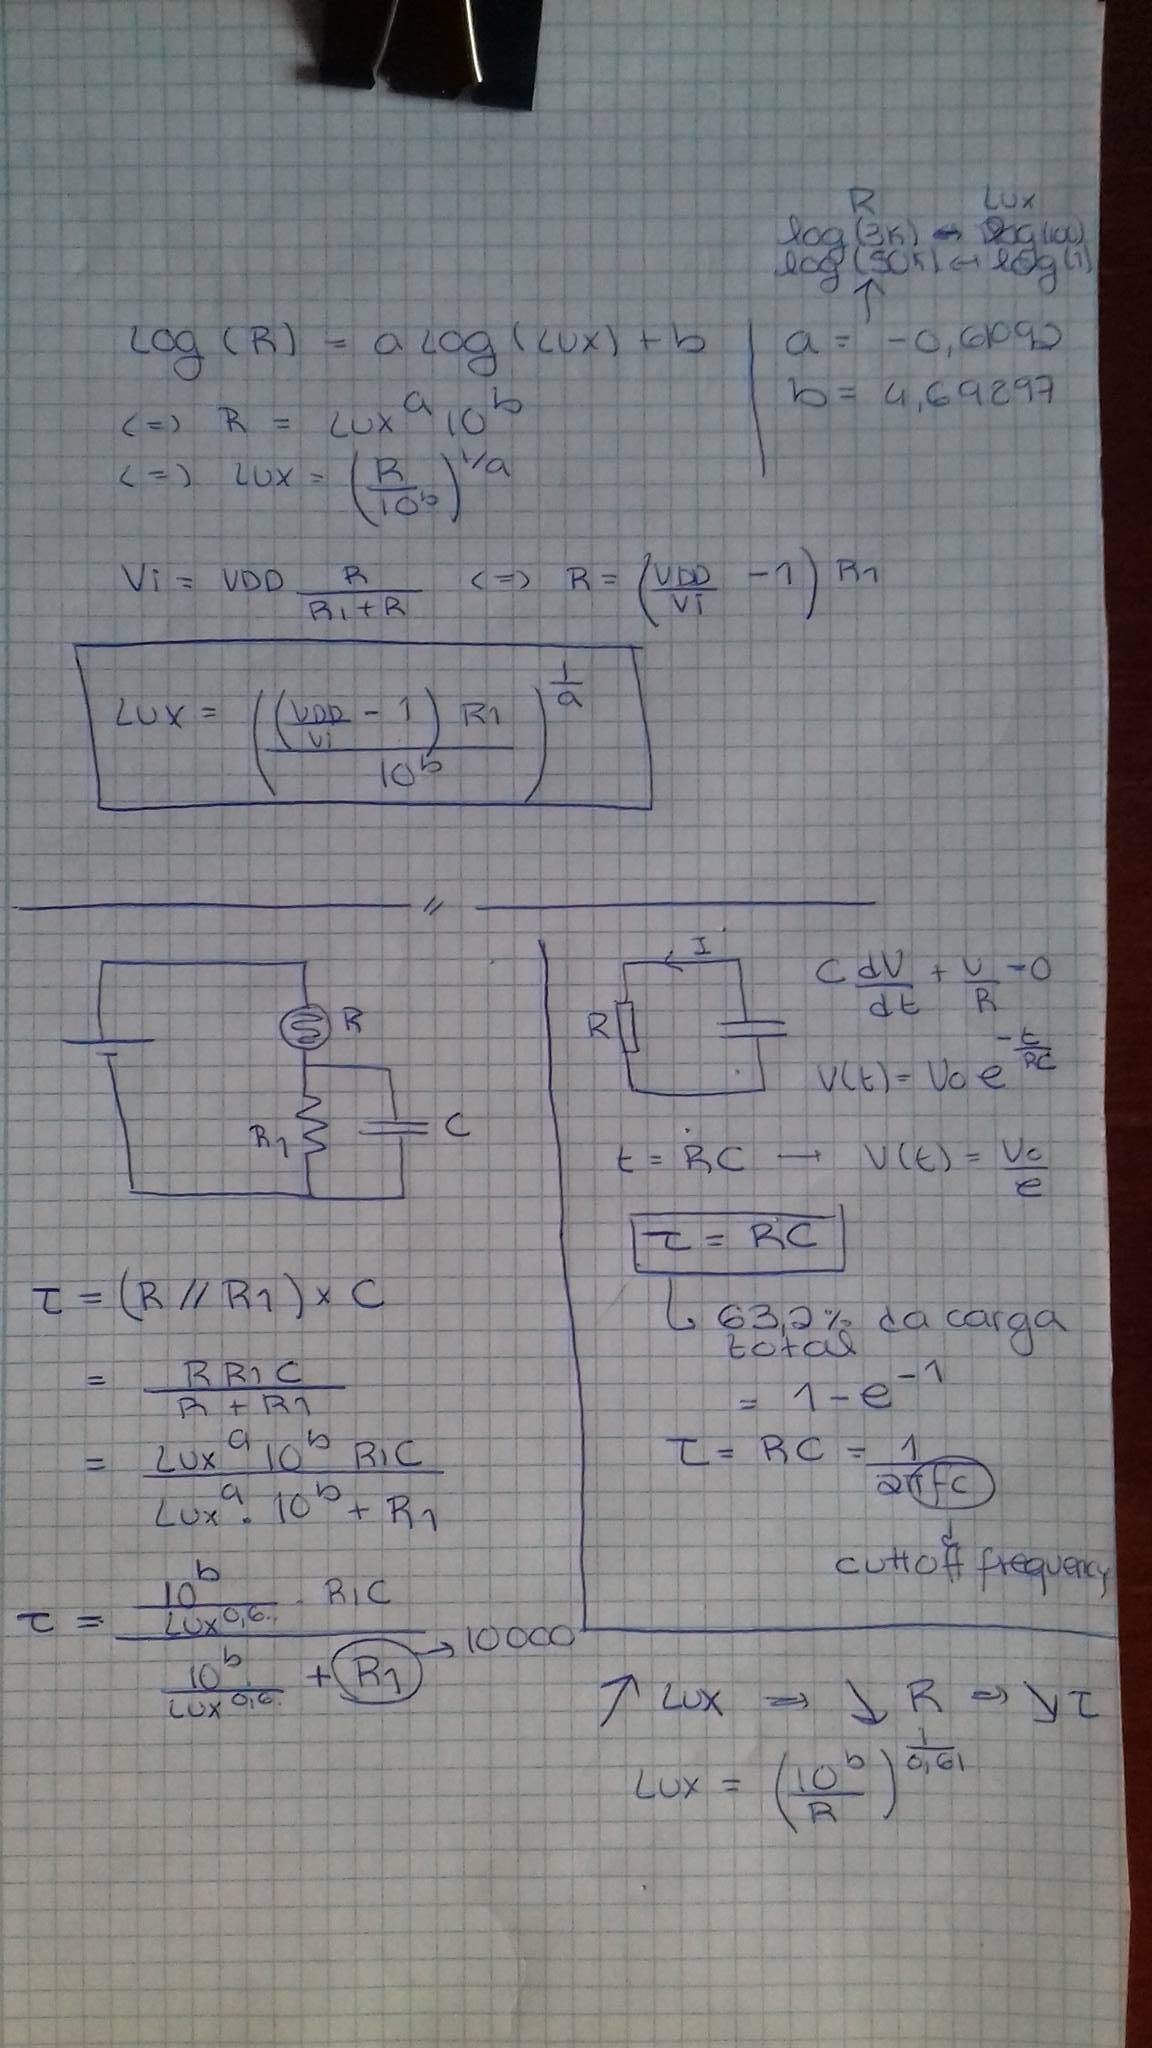 R LUX
log(3K) → log(100)
log(50K) ↔ log(1)
↑
Log(R) = a Log(LUX) + b
a = -0,61092
b = 4,69897
<=> R = LUX^a 10^b
<=> LUX = (R/10^b)^1/a
Vi = VDD R/(R1+R) <=> R = (VDD/Vi - 1) R1
LUX = (((VDD/Vi - 1) R1)/10^b)^(1/a)
//
R
R1
C
τ = (R // R1) × C
= R R1 C/(R + R1)
= LUX^a 10^b R1C/(LUX^a . 10^b + R1)
τ = (10^b/LUX^0,6.. . R1C)/(10^b/LUX^0,6.. + R1) → 10000
I
R
C dV/dt + V/R = 0
V(t) = V0 e^(-t/RC)
t = RC → V(t) = V0/e
τ = RC
↳ 63,2% da carga
total
= 1 - e^-1
τ = RC = 1/(2πfc)
cuttoff frequency
↗ LUX => ↘ R => ↘ τ
LUX = (10^b/R)^(1/0,61)